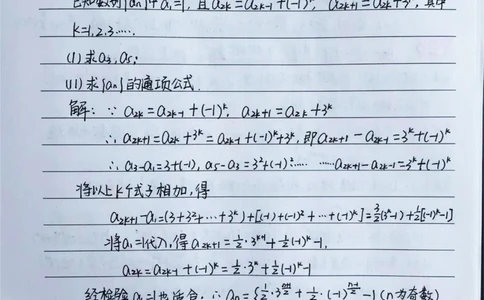 已知数列{an}中a₁=1, 且a₂ₖ=a₂ₖ₋₁+(-1)ᵏ, a₂ₖ₊₁=a₂ₖ+3ᵏ, 其中
k=1,2,3……
(1) 求a₃,a₅;
(11) 求{an}的通项公式.
解: ∵ a₂ₖ=a₂ₖ₋₁+(-1)ᵏ, a₂ₖ₊₁=a₂ₖ+3ᵏ
∴ a₂ₖ₊₁=a₂ₖ+3ᵏ=a₂ₖ₋₁+(-1)ᵏ+3ᵏ, 即a₂ₖ₊₁-a₂ₖ₋₁=3ᵏ+(-1)ᵏ
∴ a₃-a₁=3+(-1), a₅-a₃=3²+(-1)²…… ……a₂ₖ₊₁-a₂ₖ₋₁=3ᵏ+(-1)ᵏ
将以上k个式子相加,得
a₂ₖ₊₁-a₁=(3+3²+…+3ᵏ)+[(-1)+(-1)²+…+(-1)ᵏ]=3/2(3ᵏ-1)+1/2[(-1)ᵏ-1]
将a₁=1代入,得a₂ₖ₊₁=1/2·3ᵏ⁺¹+1/2(-1)ᵏ-1,
a₂ₖ=a₂ₖ₋₁+(-1)ᵏ=1/2·3ᵏ+1/2(-1)ᵏ-1
经检验a₁=1也适合, ∴ an={1/2·3^((n+1)/2)+1/2·(-1)^((n-1)/2)-1(n为奇数)